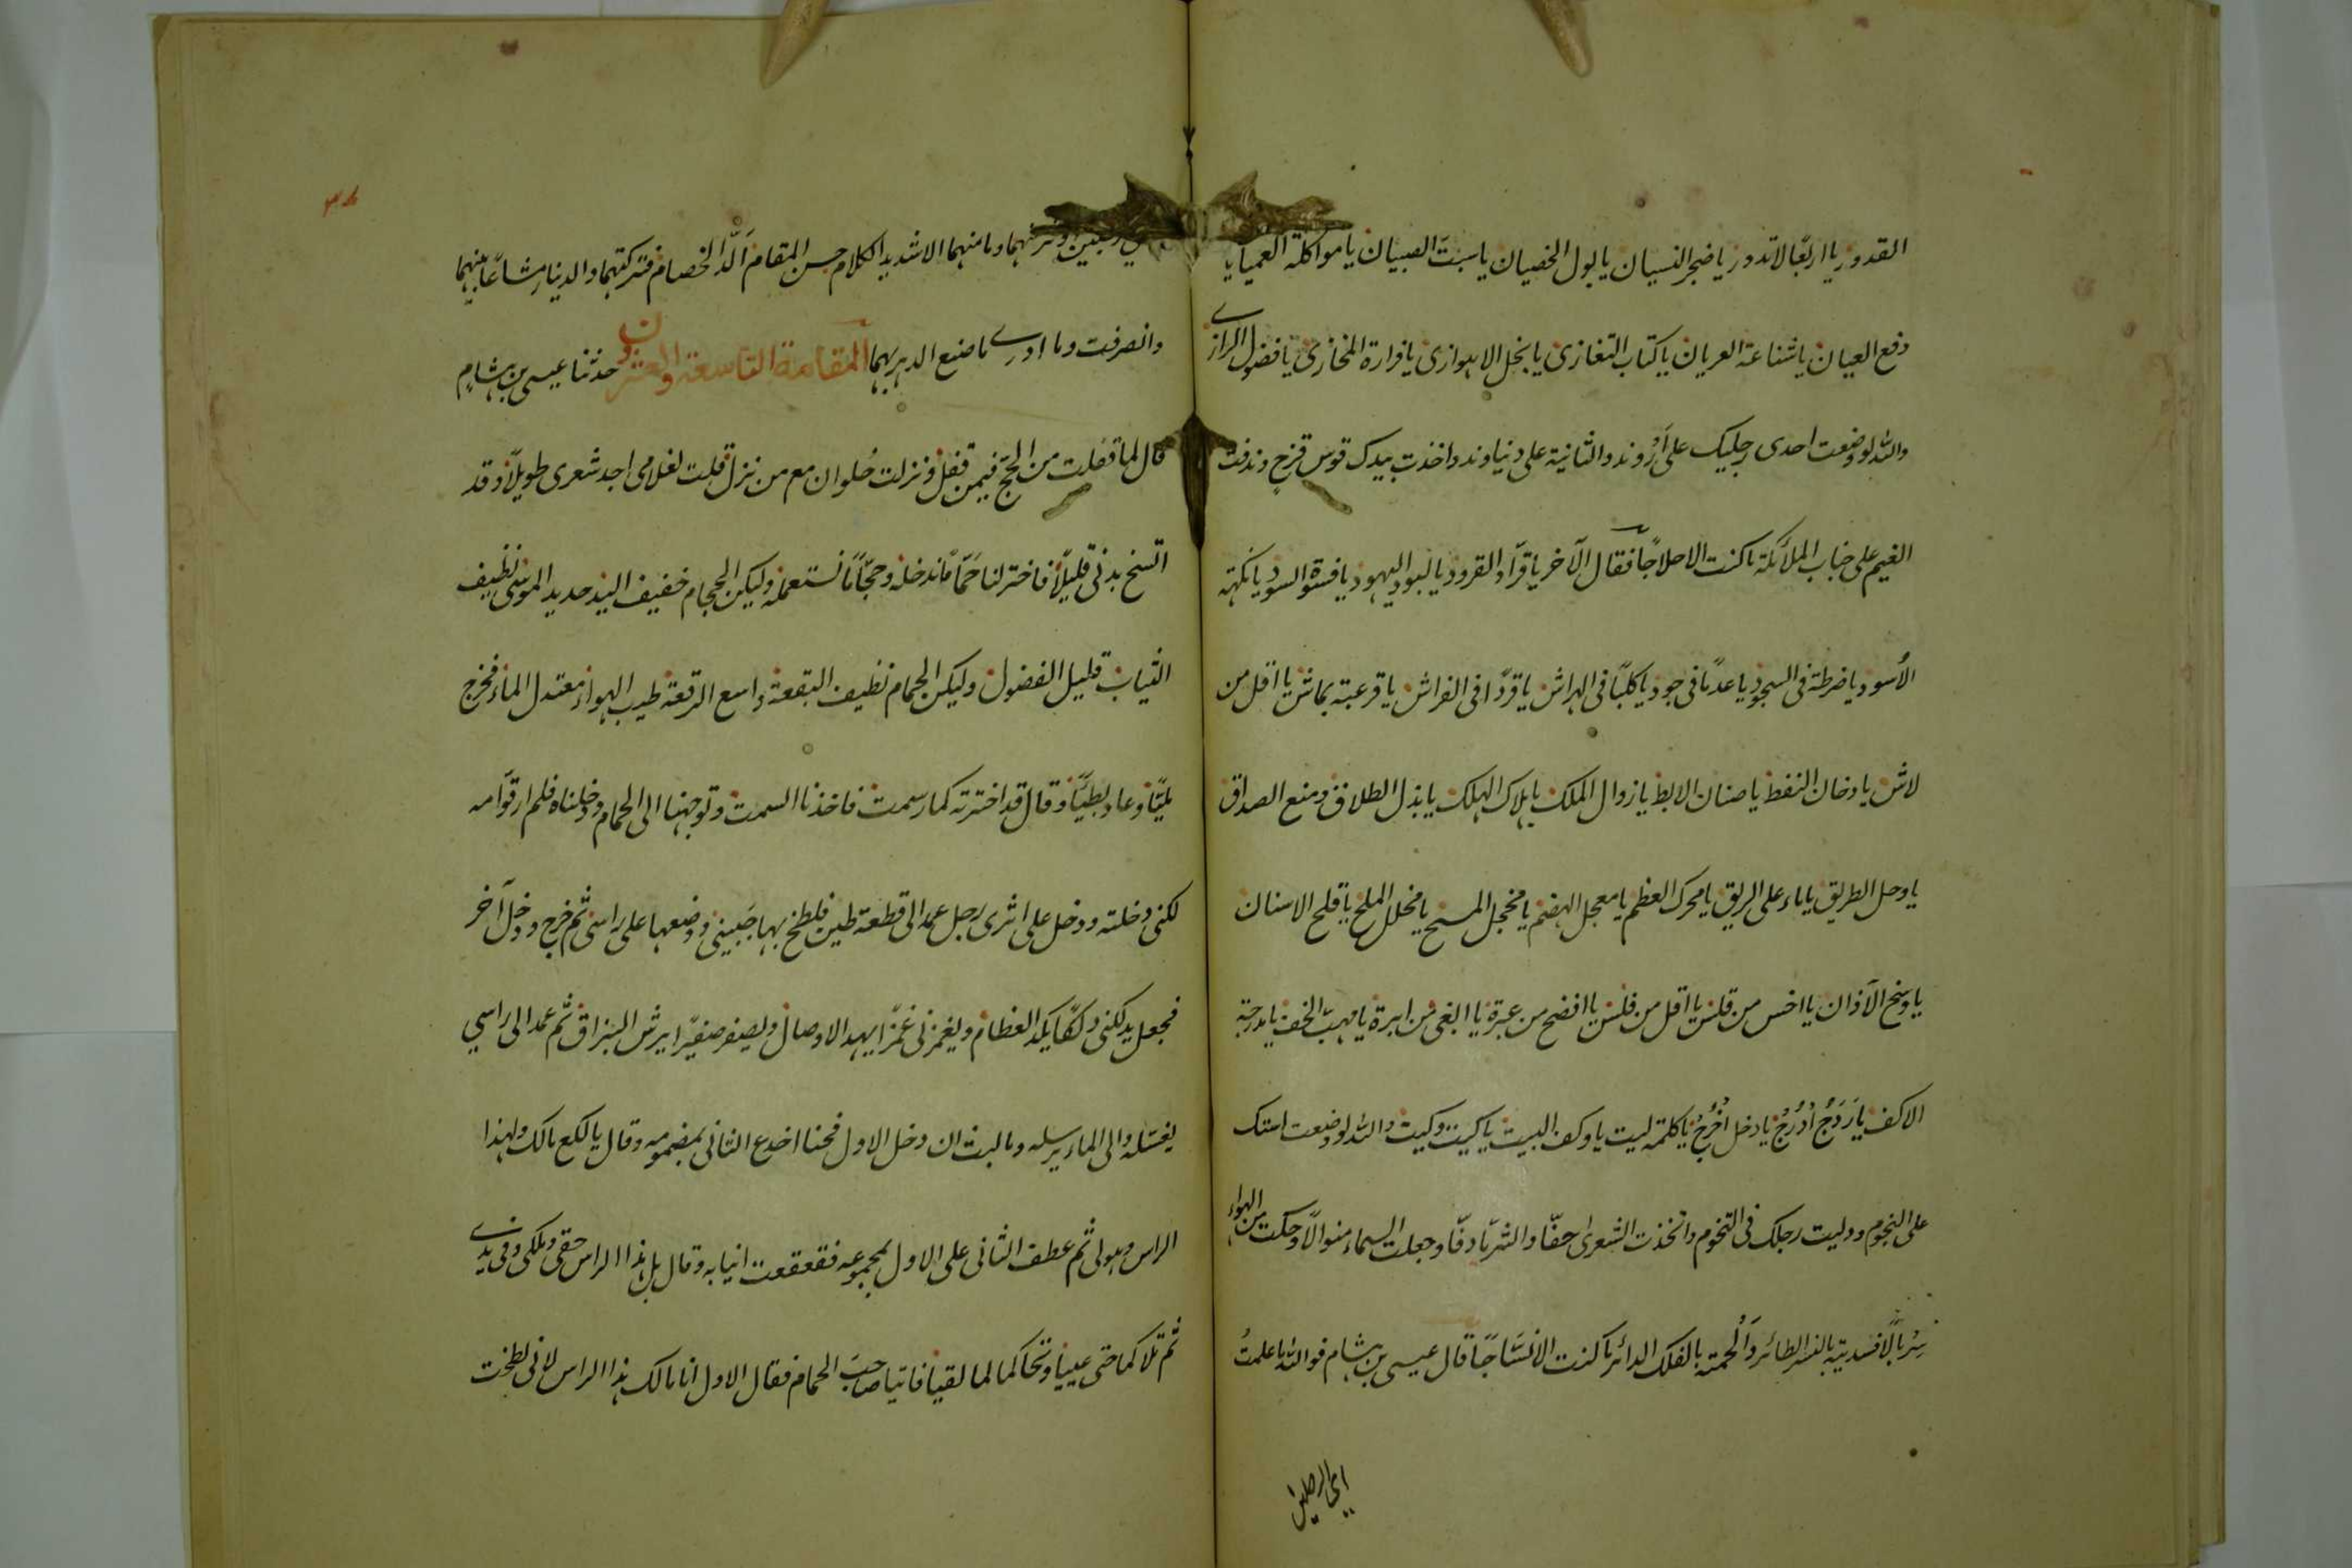 القدور يا اربعا لا تدور يا ضجر النسيان يا بول الخصيان يا سبت الصبيان يا مواكلة العميان يا
دفع العيان يا شناعة العريان يا كتاب التعازى يا بخل الاهوازى يا قرارة المخازى يا فضول الرازى
والله لو وضعت احدى رجليك على اروند والثانية على دنياوند واخذت بيدك قوس قزح وندفت
الغيم على جباب الملائكة ما كنت الا حلاجا فقال الآخر يا قراد القرود يا لبود اليهود يا فسوة السود يا نكهة
الأسود يا ضرطة فى السجود يا عدما فى جود يا كلبا فى الهراش يا قردا فى الفراش يا قرعية بماش يا اقل من
لاش يا دخان النفط يا صنان الابط يا زوال الملك يا هلاك الهلك يا بذل الطلاق ومنع الصداق
يا وحل الطريق يا ماء على الريق يا محرك العظم يا معجل الهضم يا مخجل المسخ يا مخلل الملح يا قلح الاسنان
يا وسخ الآذان يا اخس من قلس يا اقل من فلس يا افضح من عبرة يا ابغى من ابرة يا مهب الخف يا مدرجة
الاكف يا رَدَجُ اُدْرُج يا دخل اُخْرُج يا كلمة ليت يا وكف البيت يا كيت وكيت والله لو وضعت استك
على النجوم ودليت رجلك فى التخوم واتخذت الشعرى خفا والثريا دفا وجعلت السماء منوالا وحكت من الهواء
سربالا فسديته بالنسر الطائر وألحمته بالفلك الدائر ما كنت الا نسّاجا قال عيسى بن هشام فوالله ما علمتُ
اى الرجلين
وما منهما الا شديد الكلام حسن المقام ألدّ الخصام فتركتهما والدينار مشاعا بينهما
وانصرفت وما ادرى ما صنع الدهر بهما المقامة التاسعة والعشرون حدثنا عيسى بن هشام
قال لما قفلت من الحج فيمن قفل ونزلت حُلوان مع من نزل قلت لغلامى اجد شعرى طويلا وقد
اتسخ بدنى قليلا فاختر لنا حمّاما ندخله وحجّاما نستعمله وليكن الحجام خفيف اليد حديد الموسى نظيف
الثياب قليل الفضول وليكن الحمام نظيف البقعة واسع الرقعة طيب الهواء معتدل الماء فخرج
مليّا وعاد بطيّا وقال قد اخترته كما رسمت فاخذنا السمت وتوجهنا الى الحمام ودخلناه فلم ار قوّامه
لكنى دخلته ودخل على اثرى رجل عمد الى قطعة طين فلطخ بها جبينى ووضعها على راسى ثم خرج ودخل آخر
فجعل يدلكنى دلكا يكد العظام ويغمزنى غمزا يهد الاوصال ويصفر صفيرا يرش البزاق ثم عمد الى راسي
يغسله والى الماء يرسله وما لبث ان دخل الاول فحنا اخدع الثانى بمضمومه وقال يا لكع مالك ولهذا
الراس وهولى ثم عطف الثانى على الاول بمجموعه فقعقعت انيابه وقال بل هذا الراس حقى وملكى وفى يدى
ثم تلاكما حتى عييا وتحاكما لما لقيا فاتيا صاحبَ الحمام فقال الاول انا مالك هذا الراس لانى لطخت